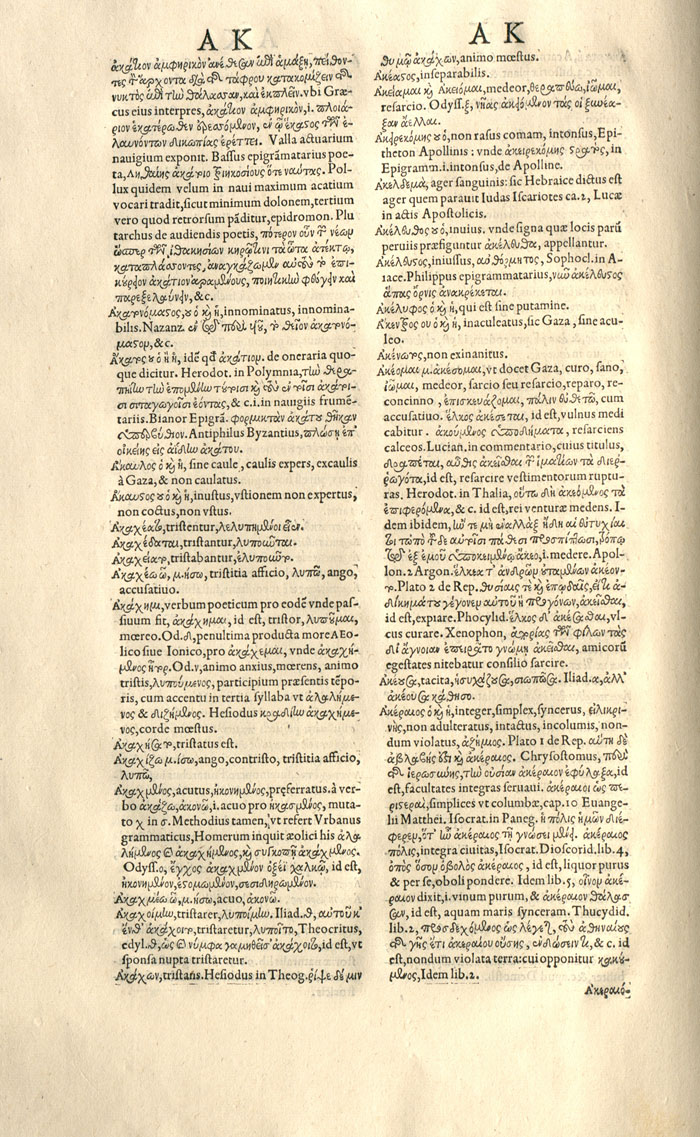 ΑΚ
ἀκάτιον ἀμφηρικὸν
νυκτὸς ἐπὶ τὴν θάλασσαν, καὶ ἐκπλεῖν. vbi Græ-
cus eius interpres, ἀκάτιον ἀμφηρικὸν, i. πλοιά-
ριον ἑκατέρωθεν ἐρεσσόμενον, ἐν ᾧ ἕκαστος τῶν ἐ-
λαυνόντων δικωπίας ἐρέττει. Valla actuarium
nauigium exponit. Bassus epigrãmatarius poe-
ta, ὅτε ναύτας. Pol-
lux quidem velum in naui maximum acatium
vocari tradit, sicut minimum dolonem, tertium
vero quod retrorsum pãditur, epidromon. Plu
tarchus de audiendis poetis, πότερον οὖν
καταπλάσσοντες, ἀναγκάζωμεν
παρεξελαύνειν, &c.
Ἀκατονόμαστος, ου ὁ καὶ ἡ, innominatus, innomina-
bilis. Nazanz.
μαστον, &c.
Ἄκατος ου ὁ καὶ ἡ, idẽ qđ ἀκάτιον. de oneraria quo-
que dicitur. Herodot. in Polymnia,
&c. i. in nauigiis frumẽ-
tariis. Bianor Epigrã.
Antiphilus Byzantius,
Ἄκαυλος ὁ καὶ ἡ, sine caule, caulis expers, excaulis
à Gaza, & non caulatus.
Ἄκαυστος ου ὁ καὶ ἡ, inustus, vstionem non expertus,
non coctus, non vstus.
tristentur, λελυπημένοι εἶεν.
Ἀκαχέδαται, tristantur, λυποῦνται.
tristabantur, ἐλυποῦντο.
Ἀκαχέω ῶ, μ. ήσω, tristitia afficio, λυπῶ, ango,
accusatiuo.
Ἀκάχημι, verbum poeticum pro eodẽ vnde pas-
siuum fit, ἀκάχημαι, id est, tristor, λυποῦμαι,
mœreo. Od. δ, penultima producta more AEo-
lico siue Ionico, pro ἀκάχεμαι, vnde ἀκαχή-
μενος ἦτορ. Od. ν, animo anxius, mœrens, animo
tristis, λυπούμενος, participium præsentis tẽpo-
ris, cum accentu in tertia syllaba vt ἀλαλήμε-
νος & διζήμενος. Hesiodus κραδίην ἀκαχήμε-
νος, corde mœstus.
tristatus est.
Ἀκαχίζω μ. ίσω, ango, contristo, tristitia afficio,
λυπῶ.
Ἀκαχμένος, acutus, ἠκονημένος, preferratus. à ver-
bo ἀκάζω, ἀκονῶ, i. acuo pro ἠκασμένος, muta-
to χ in σ. Methodius tamen, vt refert Vrbanus
grammaticus, Homerum inquit æolici his ἀλα-
λήμενος & ἀκαχήμενος, καὶ συγκοπῇ ἀκαχμένος.
Odyss. ο, ἔγχος ἀκαχμένον ὀξέι χαλκῷ, id est,
ἠκονημένον, ἐστομωμένον, σεσιδηρωμένον.
μ. ήσω, acuo, ἀκονῶ.
Ἀκαχοίμην, tristarer, λυποίμην. Iliad. θ, αὐτοῦ κ'
ἔνθ' ἀκάχοιτο, tristaretur, λυποῖτο, Theocritus,
edyl. θ, ὡς & νύμφα γαμηθεῖσ' ἀκάχοιτο, id est, vt
sponsa nupta tristaretur.
Ἀκαχών, tristans. Hesiodus in Theog. ῥίψε δέ μιν
ΑΚ
θυμῷ ἀκαχών, animo mœstus.
Ἀκέαστος, inseparabilis.
Ἀκείαμαι καὶ Ἀκείομαι, medeor, θεραπεύω, ἰῶμαι,
resarcio. Odyss. ξ, νῆας ἀκειόμενον τάς οἱ ξυνέα-
ξαν ἄελλαι.
Ἀκειρεκόμης ου ὁ, non rasus comam, intonsus, Epi-
theton Apollinis: vnde ἀκειρεκόμης in
Epigramm. i. intonsus, de Apolline.
Ἀκελδεμὰ, ager sanguinis: sic Hebraice dictus est
ager quem parauit Iudas Iscariotes ca. 2, Lucæ
in actis Apostolicis.
Ἀκέλευθος ου ὁ, inuius. vnde signa quæ locis parũ
peruiis præfiguntur ἀκέλευθα, appellantur.
Ἀκέλευστος, iniussus, αὐθόρμητος, Sophocl. in A-
iace. Philippus epigrammatarius, ἀκέλευστος
ἅπας ὄρνις ἀνακρέκεται.
Ἀκέλυφος ὁ καὶ ἡ, qui est sine putamine.
Ἄκεντρος ου ὁ καὶ ἡ, inaculeatus, sic Gaza, sine acu-
leo.
Ἀκένωτος, non exinanitus.
Ἀκέομαι μ. ἀκέσομαι, vt docet Gaza, curo, sano,
ἰῶμαι, medeor, sarcio seu resarcio, reparo, re-
concinno, ἐπισκευάζομαι, πάλιν εὐθετῶ, cum
accusatiuo. ἕλκος ἀκέσεται, id est, vulnus medi
cabitur. ἀκούμενος ὑποδήματα, resarciens
calceos. Lucian. in commentario, cuius titulus,
δραπέται, αὖθις ἀκεῖσθαι τῶν ἱματίων τὰ διερ-
ρωγότα, id est, resarcire vestimentorum ruptu-
ras. Herodot. in Thalia, οὕτω δὴ ἀκεόμενος τὰ
ἐπιφερόμενα, &c. id est, rei venturæ medens. I-
dem ibidem,
ἐξ ἐμοῦ ὑποκειμένῳ ἀκέο, i. medere. Apol-
lon. 2 Argon.
Plato 2 de Rep. θυσίαις τε καὶ ἐπῳδαῖς, εἴτε ἀ-
δίκημά του γέγονεν αὐτοῦ ἢ προγόνων, ἀκεῖσθαι,
id est, expiare. Phocylid. ἕλκος δ' ἀκεῖσθαι, vl-
cus curare. Xenophon, ἀπορίας τῶν φίλων τὰς
δι' ἄγνοιαν ἐπειρᾶτο γνώμῃ ἀκεῖσθαι, amicorũ
egestates nitebatur consilio sarcire.
Ἀκέουσα, tacita, ἡσυχάζουσα, σιωπῶσα. Iliad. α, ἀλλ'
ἀκέουσα κάθησο.
Ἀκέραιος ὁ καὶ ἡ, integer, simplex, syncerus, εἰλικρι-
νής, non adulteratus, intactus, incolumis, non-
dum violatus, ἀζήμιος. Plato 1 de Rep. αὕτη δὲ
ἀβλαβής ἐστι καὶ ἀκέραιος. Chrysostomus,
τῆς ἱερωσύνης, τὴν οὐσίαν ἀκέραιον ἐφύλαξα, id
est, facultates integras seruaui. ἀκέραιοι ὡς πε-
ριστεραὶ, simplices vt columbæ, cap. 10 Euange-
lii Matthei. Isocrat. in Paneg. ἡ πόλις ἡμῶν διέ-
φερεν, ὅτ' ἦν ἀκέραιος ἀκέραιος
πόλις, integra ciuitas, Isocrat. Dioscorid. lib. 4,
ὀπὸς ὅσον ὀβολὸς ἀκέραιος, id est, liquor purus
& per se, oboli pondere. Idem lib. 5, οἶνον ἀκέ-
ραιον dixit, i. vinum purum, & ἀκέραιον θάλασ-
σαν, id est, aquam maris synceram. Thucydid.
lib. 2, προσδεχόμενος ὡς λέγεται,
τῆς γῆς ἔτι ἀκεραίου οὔσης, ἐνδώσειν &c. id
est, nondum violata terra: cui opponitur κακου-
μένος, Idem lib. 2.
Ἀκεραιό-